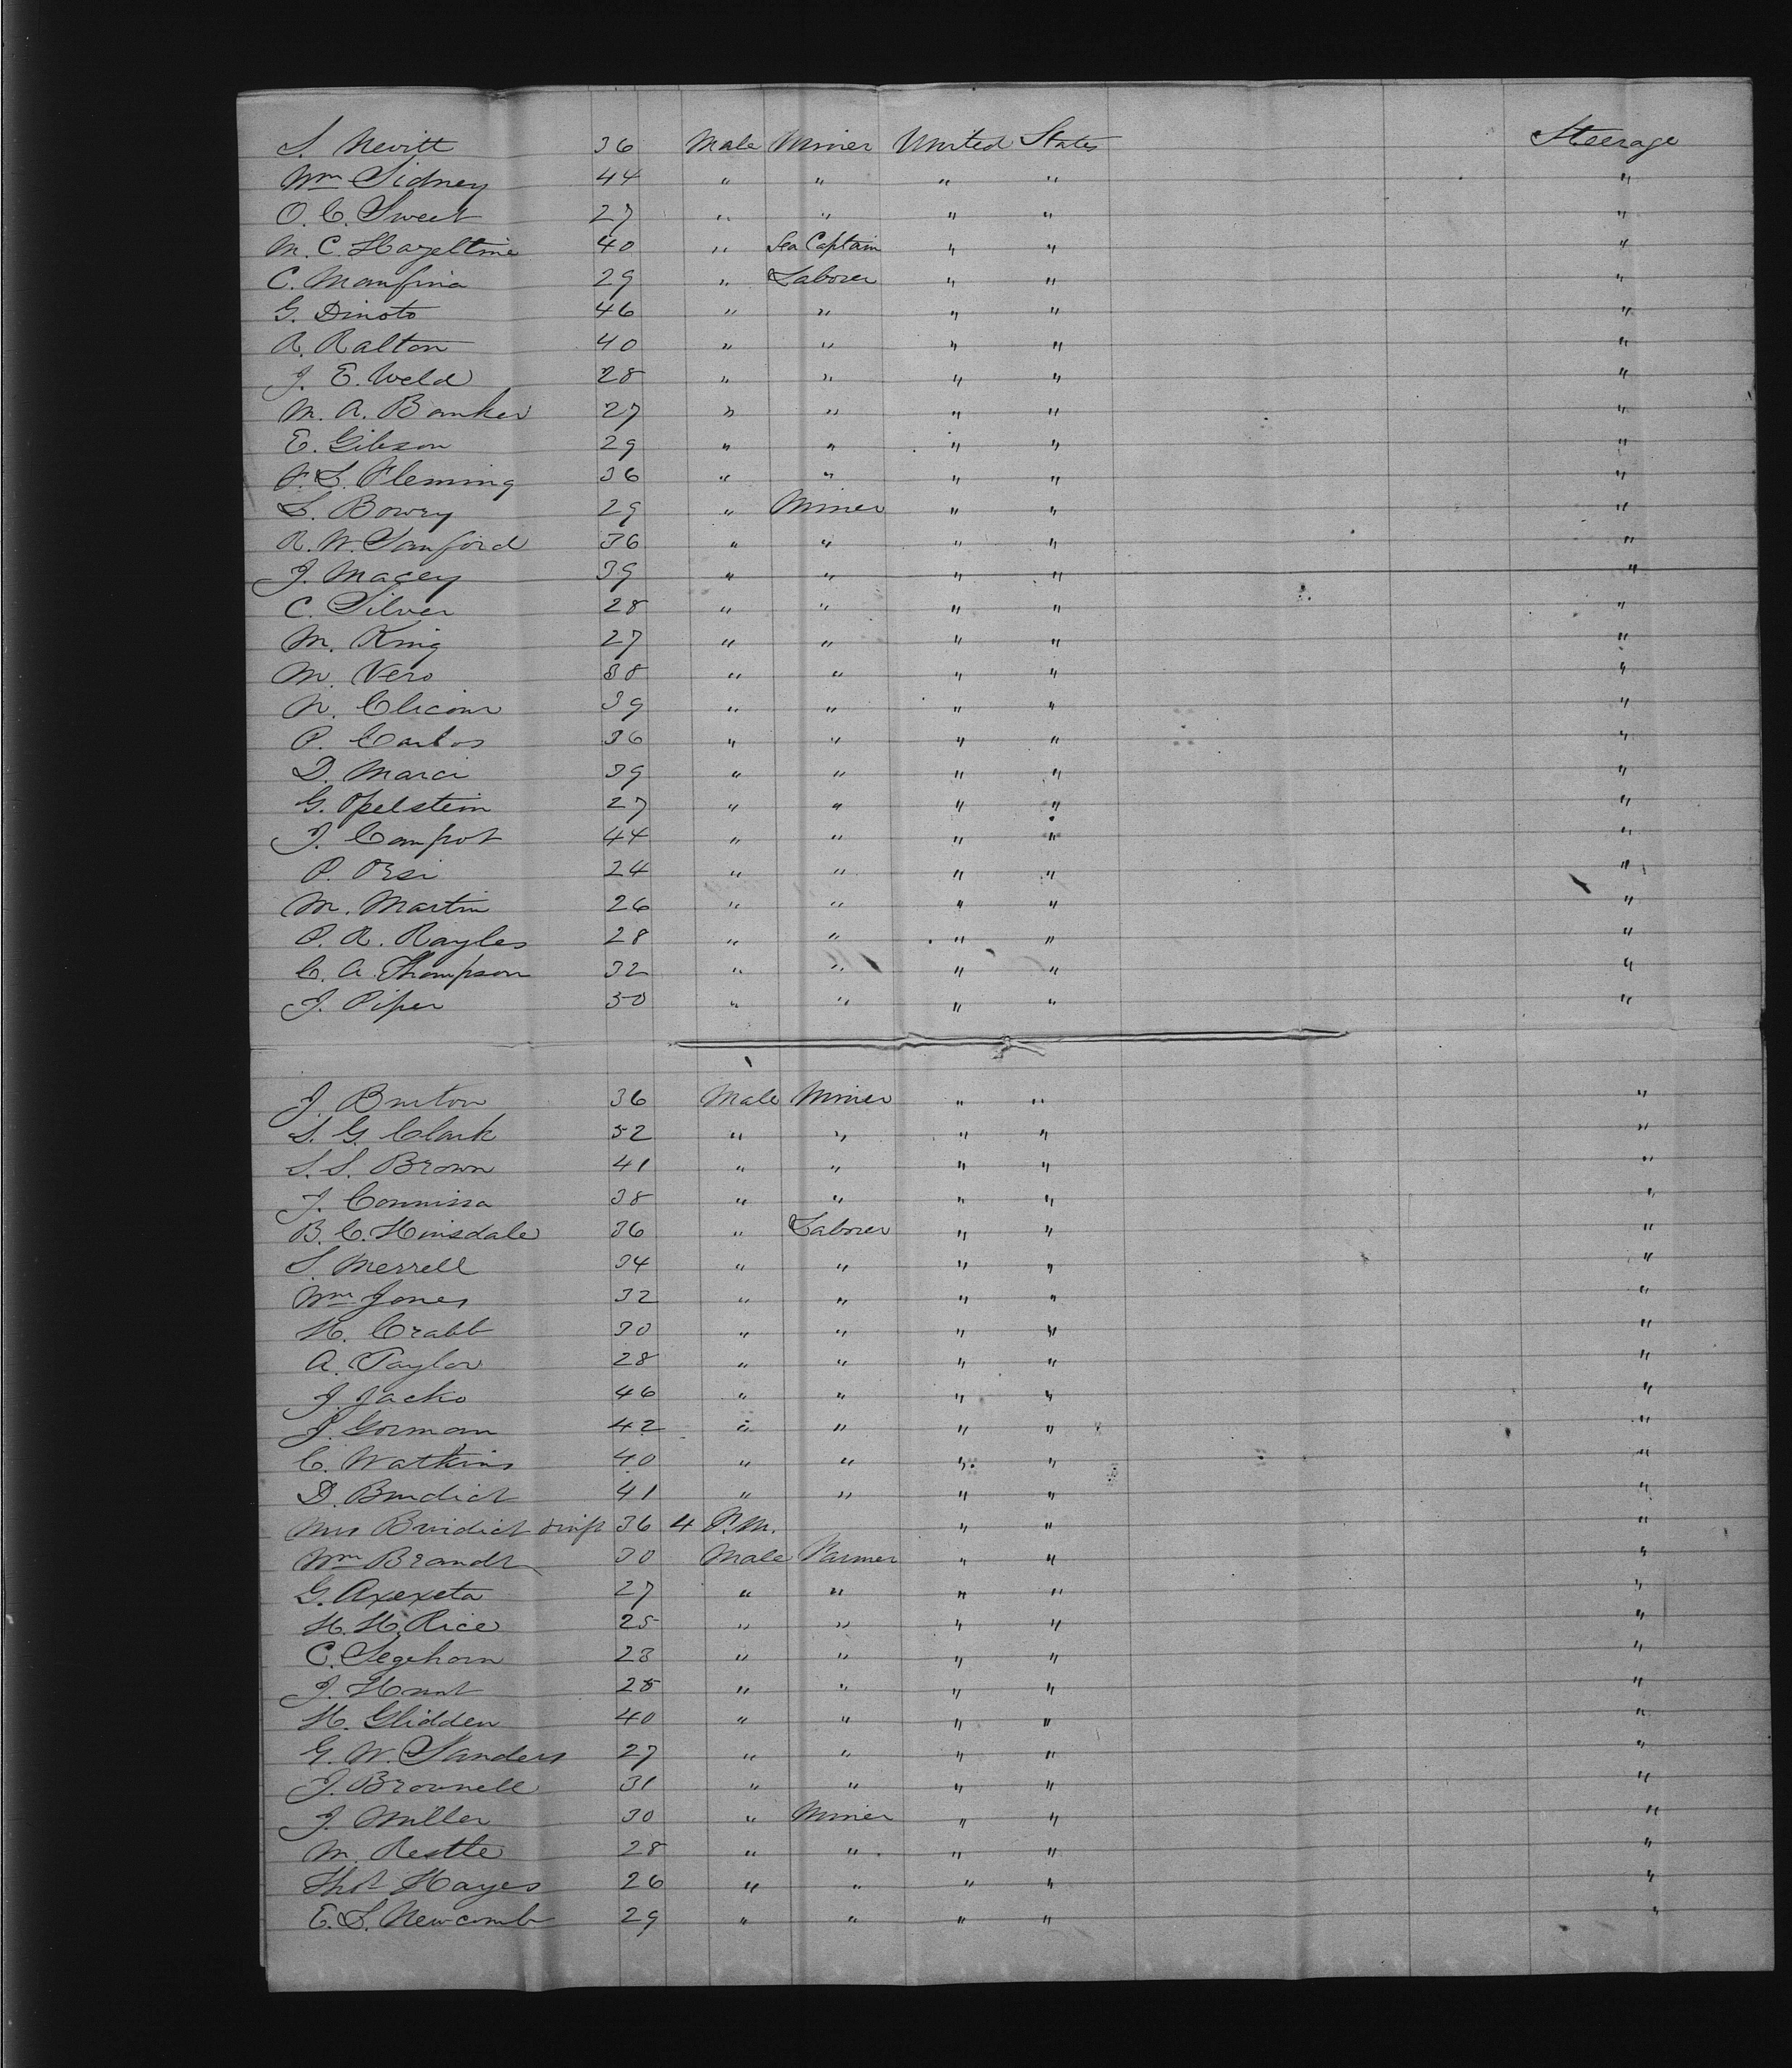 S. Nevitt 36 Male Miner United States Steerage
Wm Sidney 44 " " " " "
O. C. Sweet 27 " " " " "
M. C. Hazeltine 40 " Sea Captain " " "
C. Manfina 29 " Laborer " " "
G. Dinoto 46 " " " " "
R. Ralton 40 " " " " "
J. E. Weld 28 " " " " "
M. A. Banker 27 " " " " "
E. Gibson 29 " " " " "
F. S. Fleming 36 " " " " "
S. Bowry 29 " Miner " " "
R. W. Sanford 36 " " " " "
J. Macey 39 " " " " "
C. Silver 28 " " " " "
M. King 27 " " " " "
M. Vero 38 " " " " "
N. 39 " " " " "
P. Carlos 36 " " " " "
D. Marci 39 " " " " "
G. Opelstein 27 " " " " "
J. Campot 44 " " " " "
P. Orsi 24 " " " " "
M. Martin 26 " " " " "
P. R. Rayles 28 " " " " "
C. A. Thompson 32 " " " " "
J. Piper 30 " " " " "
J. Burton 36 Male Miner " " "
S. G. Clark 32 " " " " "
S. S. Brown 41 " " " " "
J. 38 " " " " "
B. C. Hinsdale 36 " Laborer " " "
S. Merrell 34 " " " " "
Wm Jones 32 " " " " "
H. Crabb 30 " " " " "
A. Taylor 28 " " " " "
J. Jacko 46 " " " " "
J. Gorman 42 " " " " "
C. Watkins 40 " " " " "
D. Burdict 41 " " " " "
Mrs Burdict 36 4 " " "
Wm Brandt 30 Male Farmer " " "
G. Axexeta 27 " " " " "
H. H. Rice 25 " " " " "
C. Segehorn 23 " " " " "
J. Hunt 28 " " " " "
H. Glidden 40 " " " " "
G. W. Sanders 27 " " " " "
J. Brownell 31 " " " " "
J. Miller 30 " Miner " " "
M. Restle 28 " " " " "
Thos Hayes 26 " " " " "
E. S. Newcomb 29 " " " " "